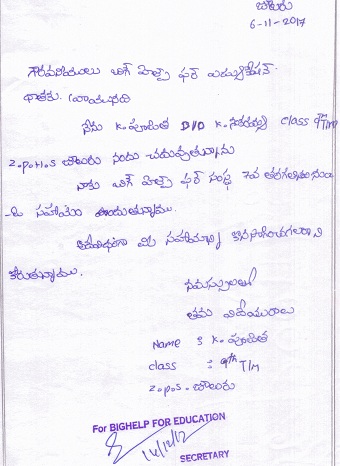 చౌటురు
6-11-2017
గౌరవనియులు బిగ్ హెల్ప్ ఫర్ ఎడ్యుకేషన్.
దాతకు. వ్రాయునది
నేను K. పూజిత D/O K. class 9th T/m
Z.P.H.S చౌటురు నందు చదువుతున్నాను
నాకు బిగ్ హెల్ప్ ఫర్ సంస్థ 7వ తరగతి నుంచి
సహాయం అందుతున్నాము.
అదేవిధంగా మీ సహాయాన్ని కొనసాగించగలరని
కోరుతున్నాము.
నమస్సులతో
తమ విదేయురాలు
Name : K. పూజిత
class : 9th T/m
Z.P.S. చౌటురు
For BIGHELP FOR EDUCATION
14/12/17
SECRETARY